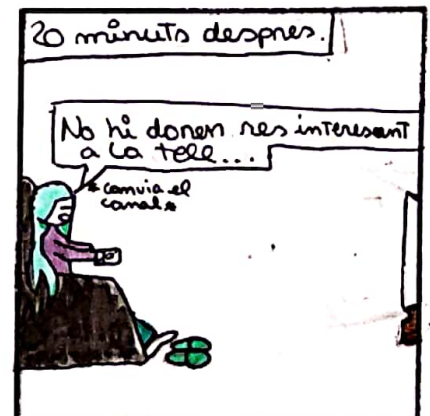 20 minuts despres.
No hi donen res interesant
a la tele...
*camvia el
canal*